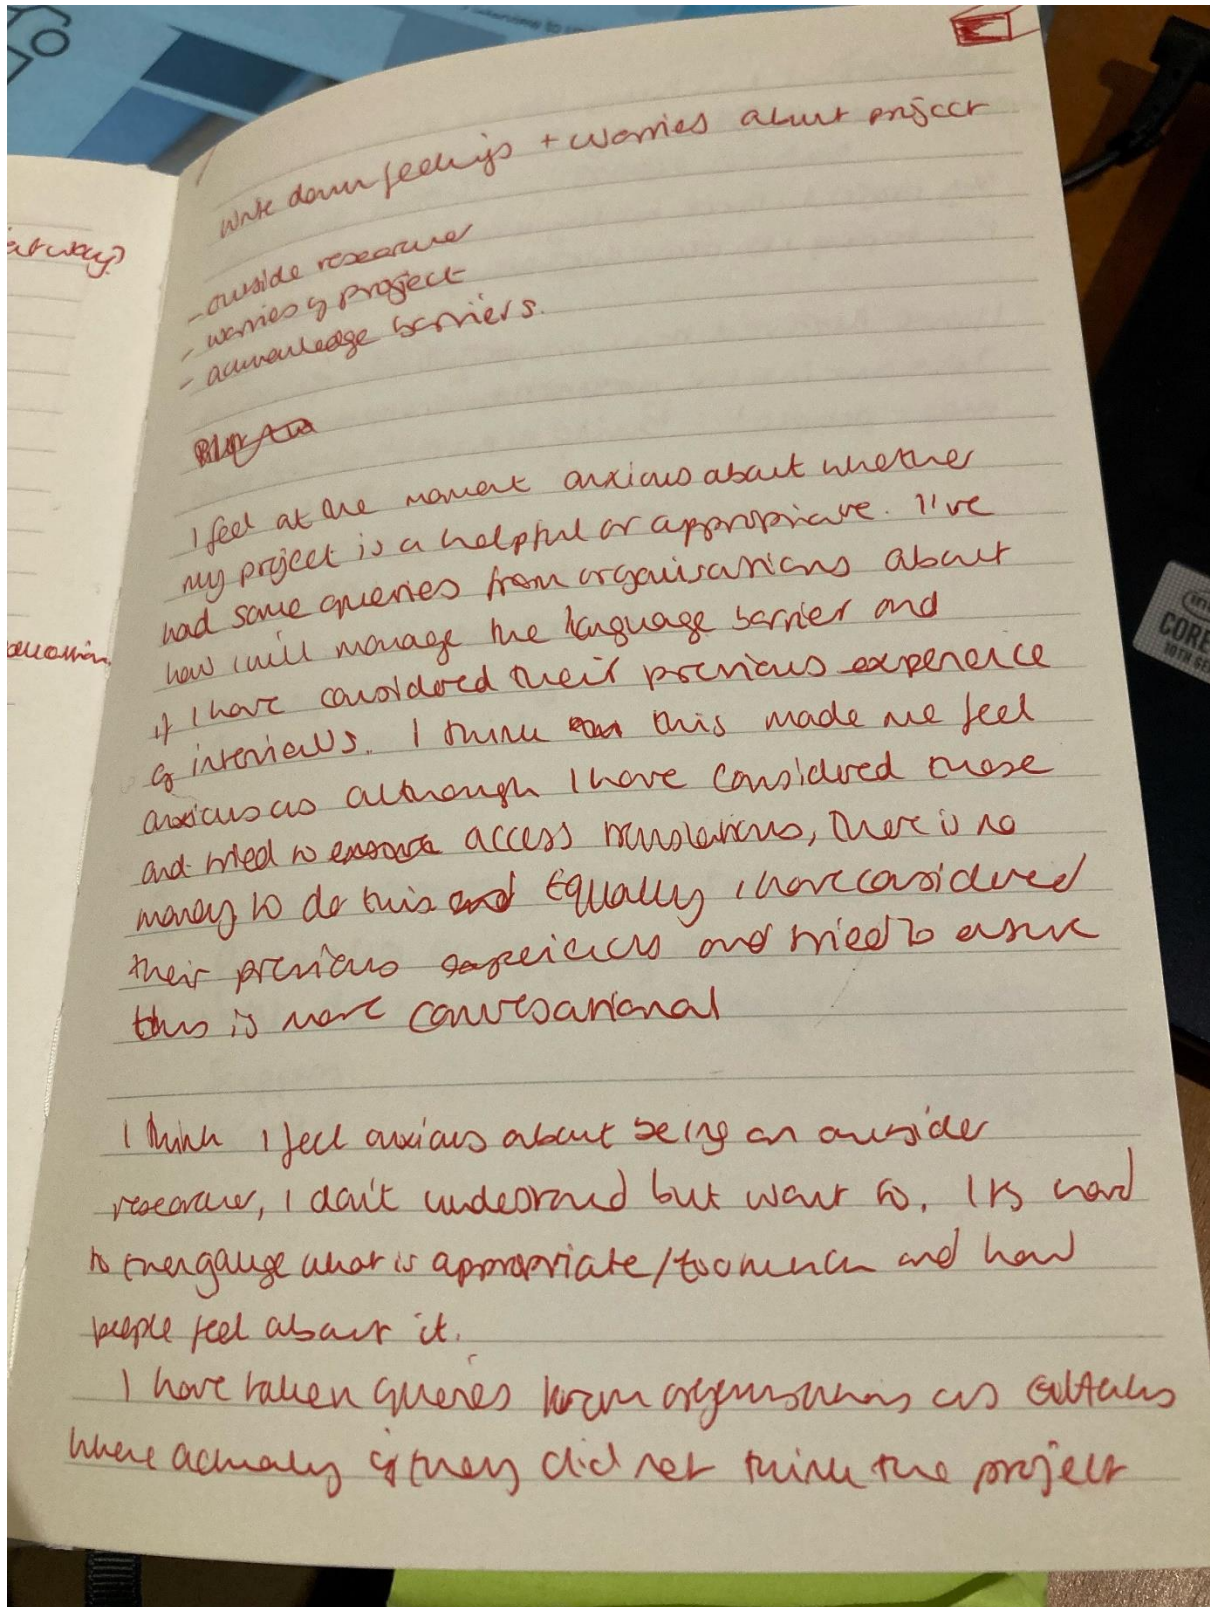 write down feelings + worries about project
- outside researcher
- worries of project
- acknowledge barriers.
I feel at the moment anxious about whether
my project is a helpful or appropriate. I've
had some queries from organisations about
how i will manage the language barrier and
if I have considered their previous experience
of interviews. I think this made me feel
anxious as although I have considered these
and tried to access translations, there is no
money to do this Equally i have considered
their previous experiences and tried to ensure
this is more conversational
I think I feel anxious about being an outsider
researcher, I don't understand but want to. Its hard
to then gauge what is appropriate/too much and how
people feel about it.
I have taken queries from organisations as
where actually if they did not think the project
atway?
CORE
10TH GE